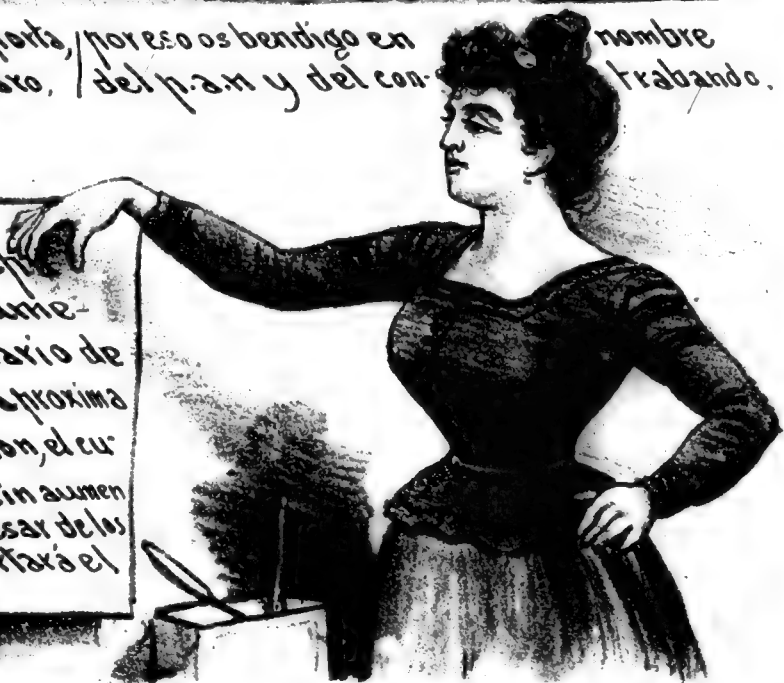 porta, / por eso os bendigo en nombre
oro, / del p.a.n y del con- trabando.
ume-
ario de
aproxima
on, el cu-
in aumen
sar de los
rtará el